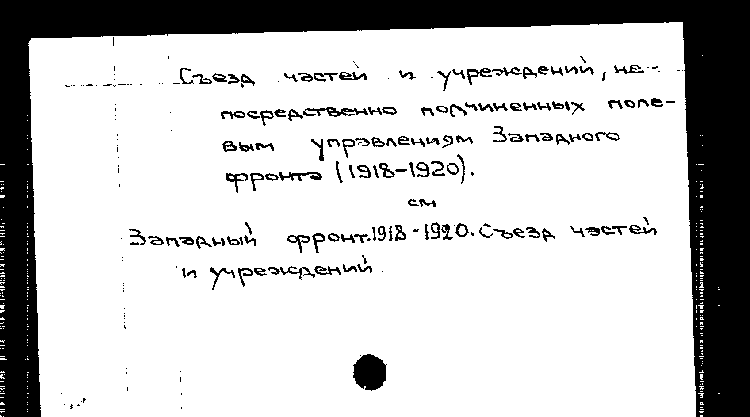 Съезд частей и учреждений, не-
посредственно подчиненных поле-
вым управлениям Западного
фронта (1918-1920).
см
Западный фронт.1918-1920. Съезд частей
и учреждений